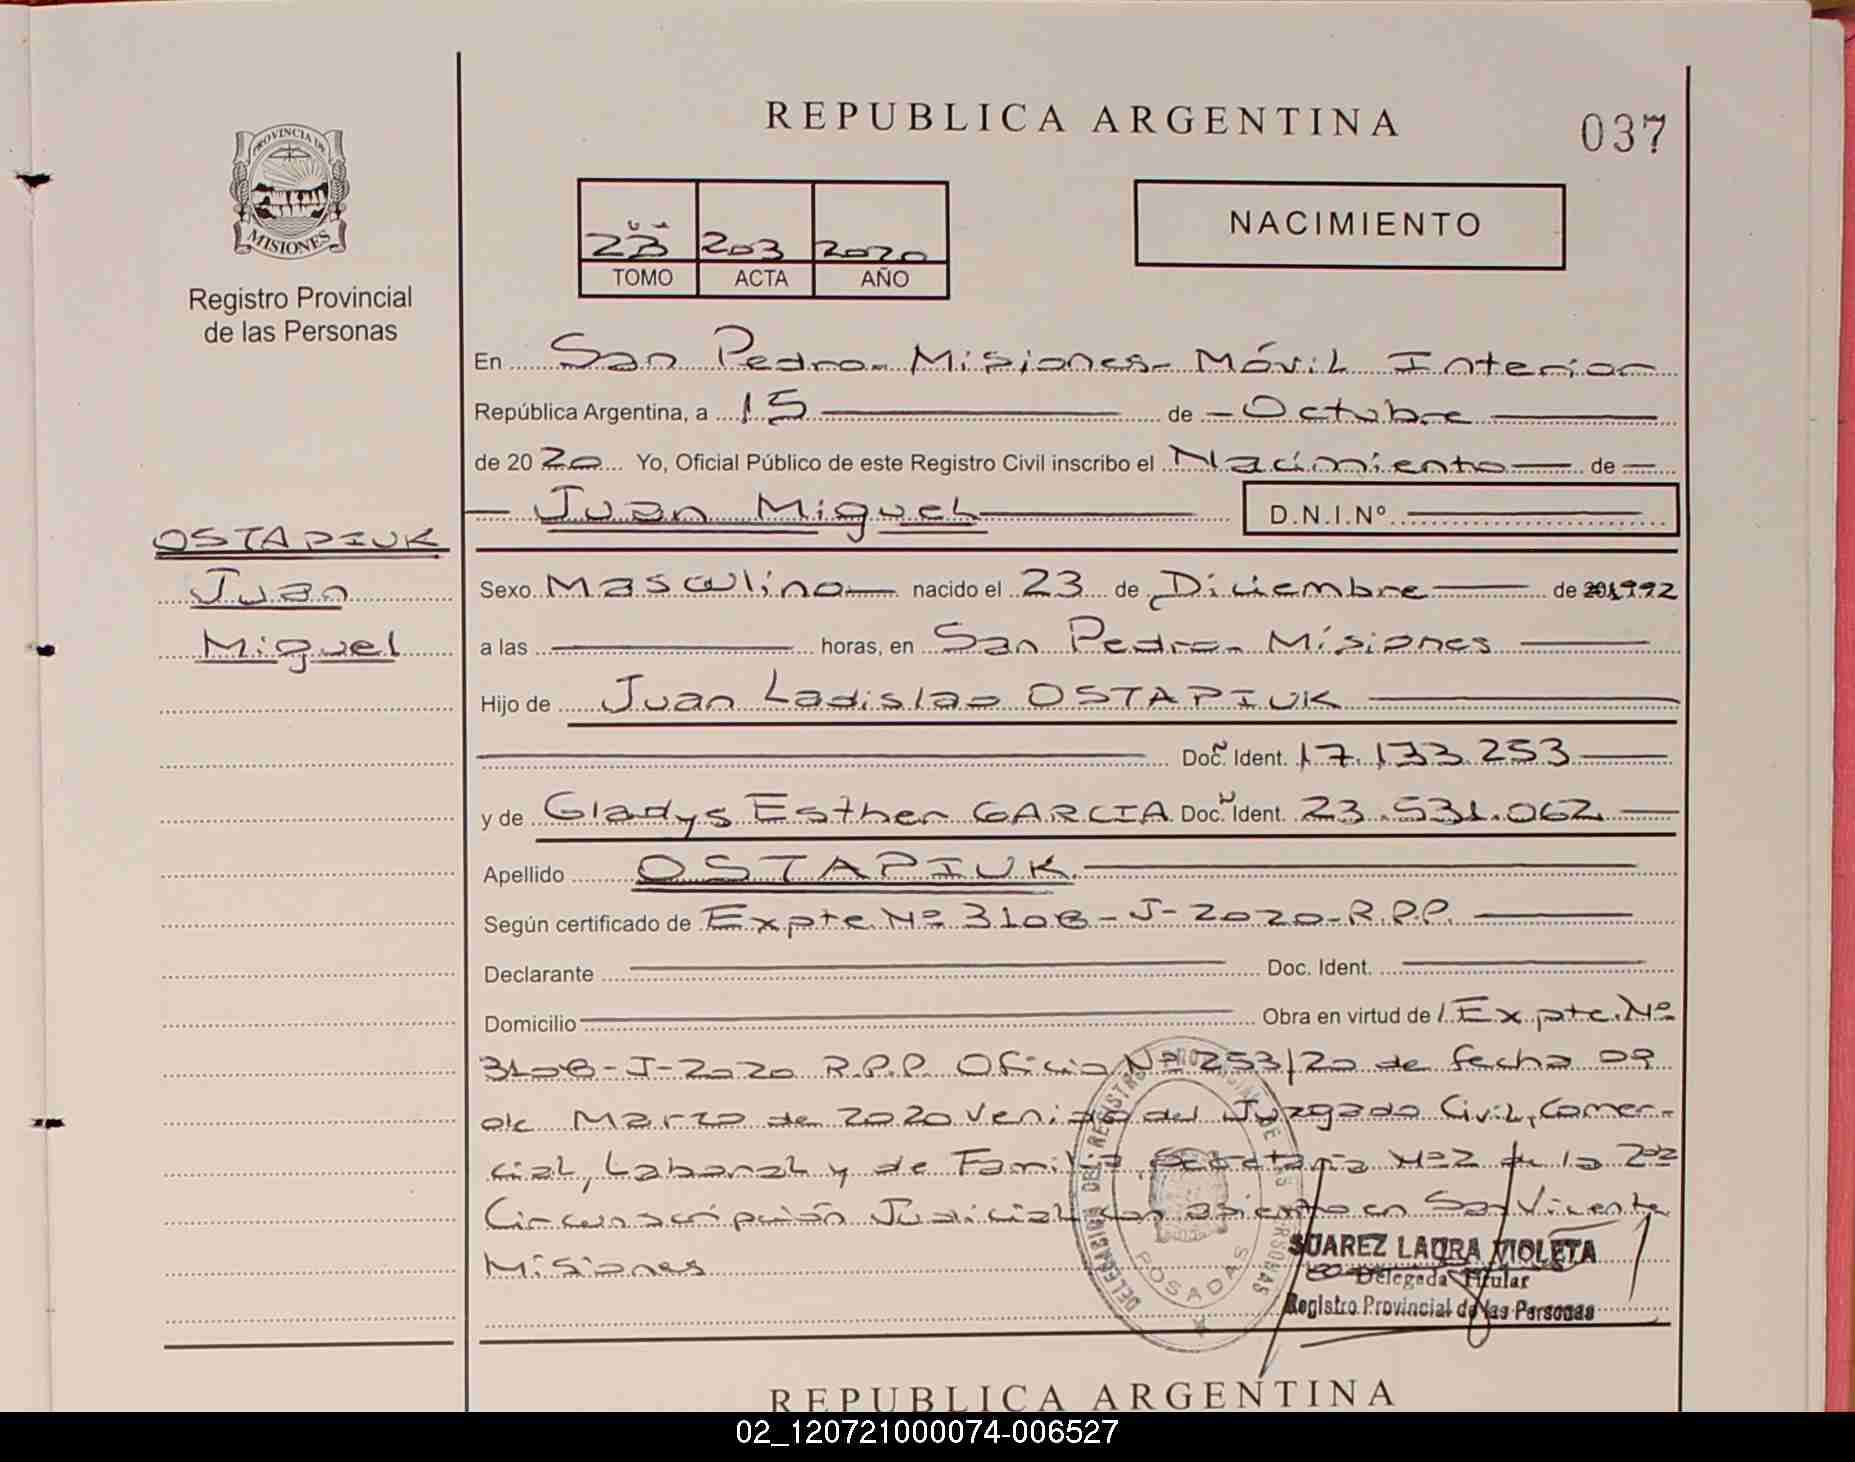 REPUBLICA ARGENTINA
037
PROVINCIA DE
MISIONES
Registro Provincial
de las Personas
23 203 2020
TOMO ACTA AÑO
NACIMIENTO
En San Pedro - Misiones - Móvil Interior
República Argentina, a 15 de Octubre
de 2020 Yo, Oficial Público de este Registro Civil inscribo el Nacimiento de
Juan Miguel D.N.I.Nº
OSTAPIUK
Juan
Miguel
Sexo Masculino nacido el 23 de Diciembre de 1992
a las horas, en San Pedro - Misiones
Hijo de Juan Ladislao OSTAPIUK
Doc. Ident. 17.133.253
y de Gladys Esther GARCIA Doc. Ident. 23.531.062
Apellido OSTAPIUK.
Según certificado de Expte. Nº 3108-J-2020-R.P.P.
Declarante Doc. Ident.
Domicilio Obra en virtud de Expte. Nº
3108-J-2020 R.P.P. Oficio Nº 253/20 de fecha 09
de Marzo de 2020 venido del Juzgado Civil, Comer-
cial, Laboral y de Familia, Secretaría Nº2 de la 2da
Circunscripción Judicial con asiento en San Vicente
Misiones
DELEGACION DEL REGISTRO PROVINCIAL DE LAS PERSONAS
POSADAS
SUAREZ LAURA VIOLETA
Delegada Titular
Registro Provincial de las Personas
REPUBLICA ARGENTINA
02_120721000074-006527